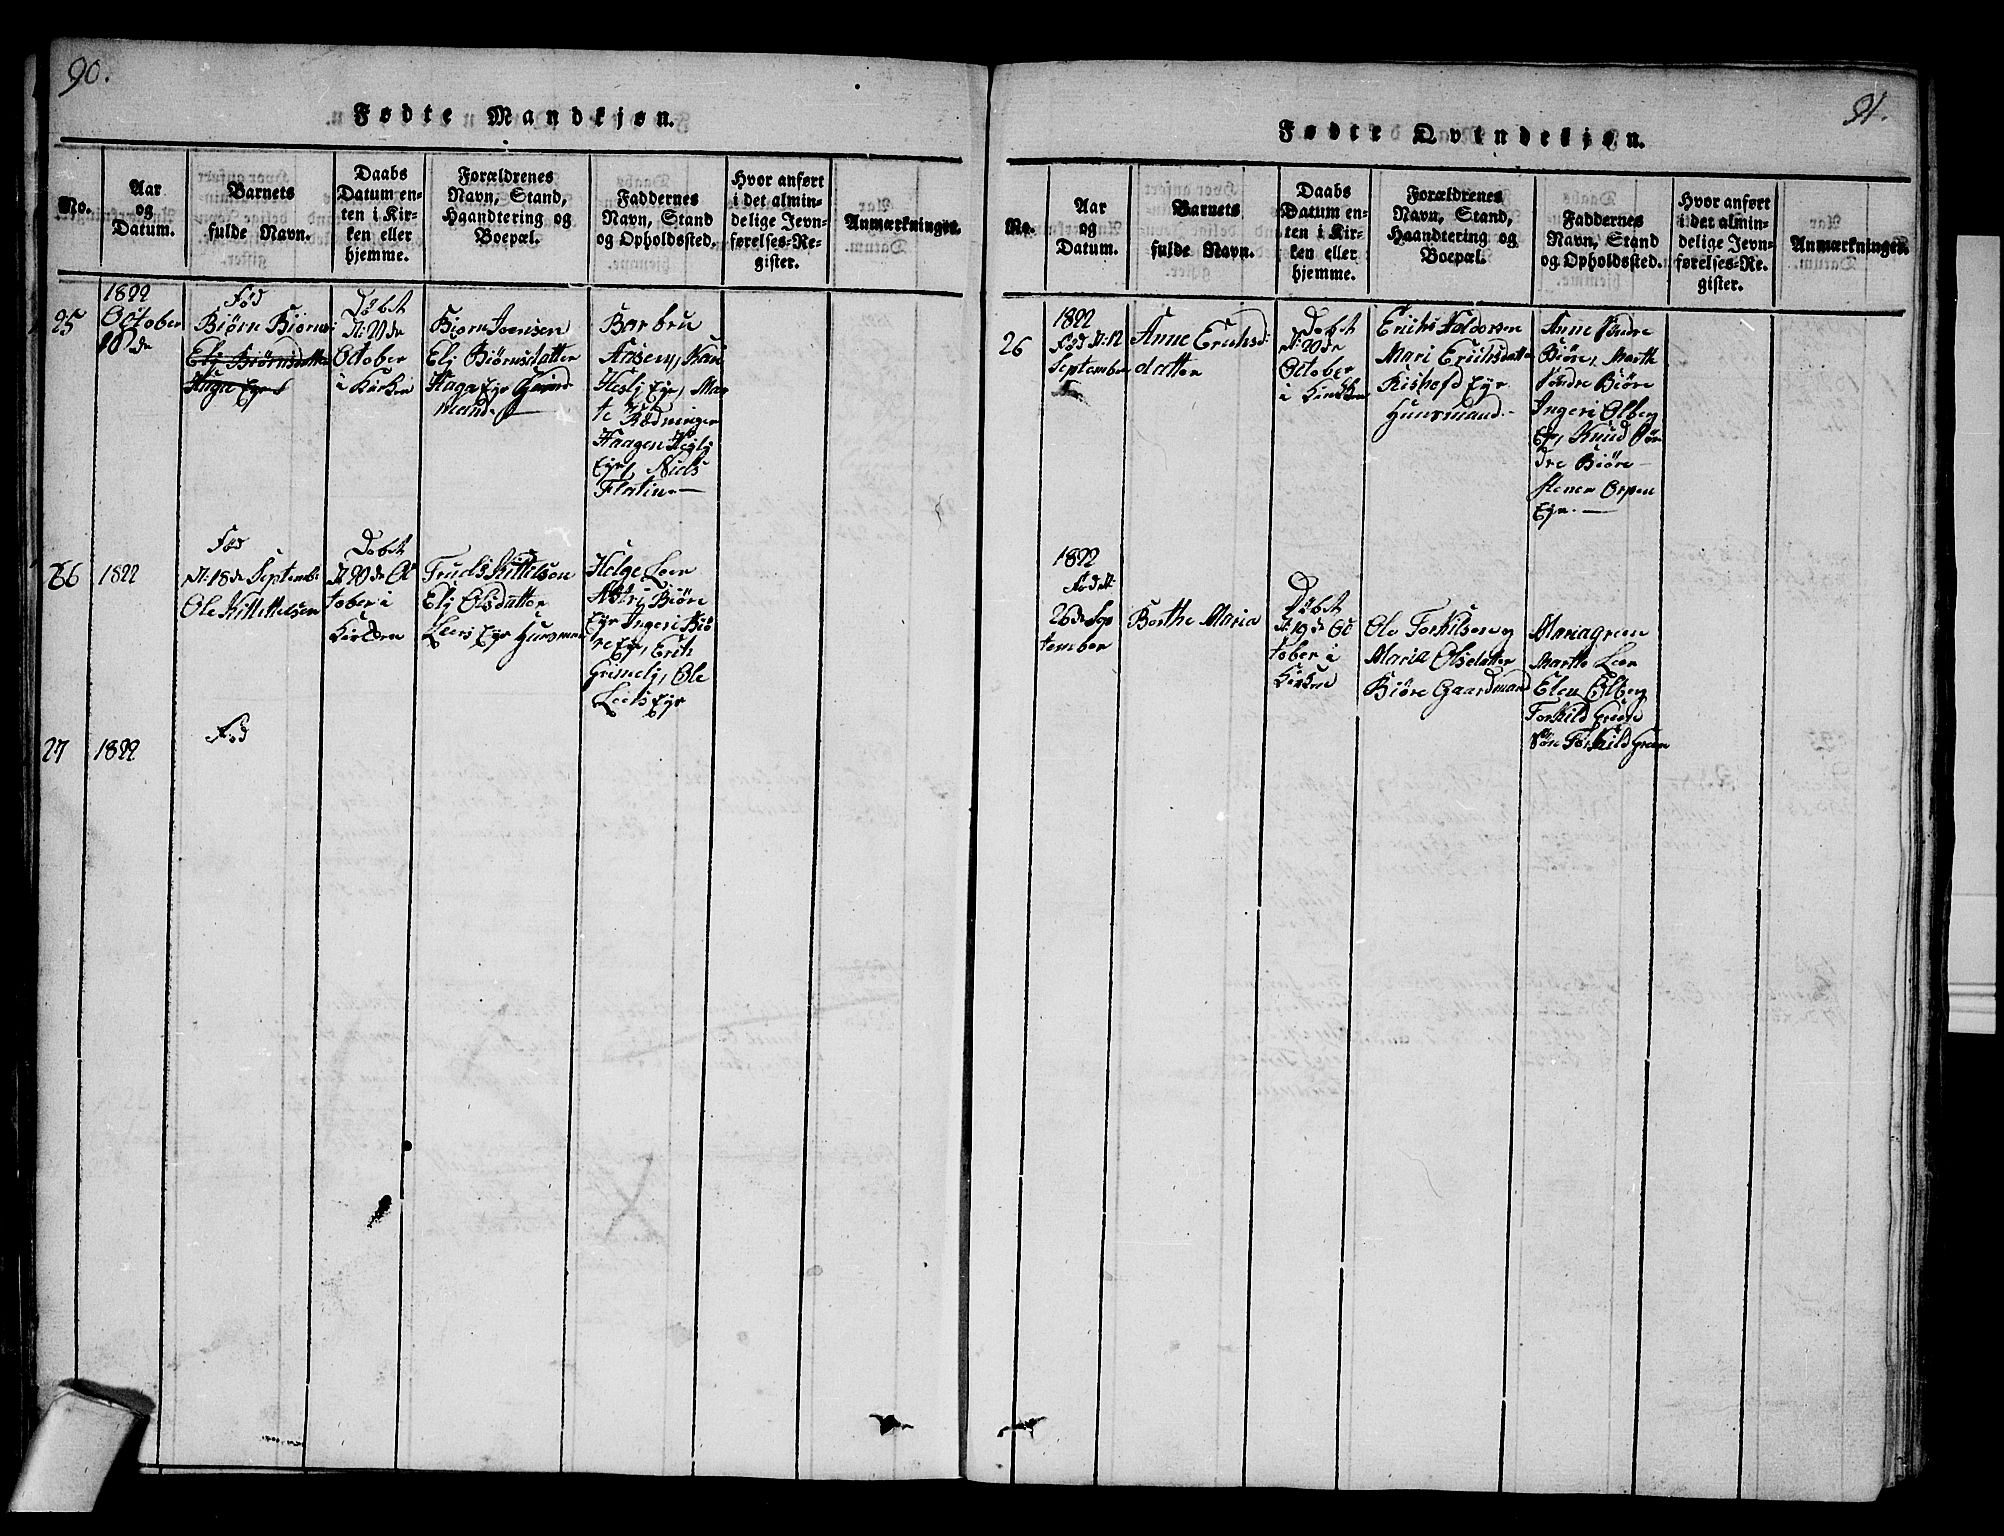 90.
Fødte Mandkjøn.
No.
Aar
og
Datum.
Barnets
fulde Navn.
Daabs
Datum en-
ten i Kir-
ken eller
hjemme.
Forældrenes
Navn, Stand,
Haandtering og
Boepæl.
Faddernes
Navn, Stand
og Opholdssted.
Hvor anført
i det almin-
delige Jevn-
førelses-Re-
gister.
Anmærkninger.
25
1822
October
10de
Fød
Biørn Biørns:
Elj Biørnsdatter
Haga Egr
Døbt
d: 20de
October
i Kirken
Biørn Joensen
Elj Biørnsdatter
Haga Egr Huus
mand
Barbru
Aasen, Kari
Heslj Egr, Mar
te Rødningen
Haagen Heslj
Egr, Niels
Flatin
26
1822
Fød
d: 18de Septembr
Ole Kittelsen
Døbt
d: 20de Oc
tober i
Kirken
Truels Kittelson
Elj Olsdatter
Leers Egr Huusman
Helge Leer
Astrj Biøre
Egr Ingeri Biø
re Egr, Erik
Grimelj, Ole
Leers Egr
27
1822
Fød
91.
Fødte Qvindekjøn.
No.
Aar
og
Datum.
Barnets
fulde Navn.
Daabs
Datum en-
ten i Kir-
ken eller
hjemme.
Forældrenes
Navn, Stand,
Haandtering og
Boepæl.
Faddernes
Navn, Stand
og Opholdssted.
Hvor anført
i det almin-
delige Jevn-
førelses-Re-
gister.
Anmærkninger.
26
1822
Fød d: 12
September
Anne Erichsd:
datter
Døbt
d: 20de
October
i Kirken
Erich Haldorsen
Mari Erichsdatter
Kishofd Egr
Huusmand
Anne Søndre
Biøre, Marth
Søndre Biøre
Ingeri Olberg
Egr, Knud Søn
dre Biøre
Stener Ospen
Egr.
1822
Fød d:
26de Sep
tember
Berthe Maria
Døbt
d: 19de Oc
tober i
Kirken
Ole Torkilsen og
Maria Olsdatter
Biøre Gaardmand
Maria Green
Marthe Leer
Elen Olberg
Torkild Green
Torkild Green